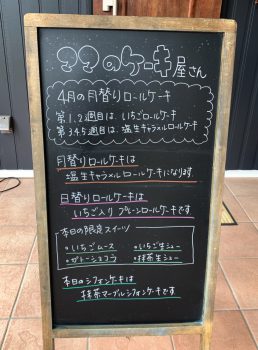 ママのケーキ屋さん
4月の月替りロールケーキ
第1.2週目は、いちごロールケーキ
第3.4.5週目は、塩生キャラメルロールケーキ
月替りロールケーキは
塩生キャラメルロールケーキになります
日替りロールケーキは
いちご入りプレーンロールケーキです
本日の限定スイーツ
•いちごムース •いちご生シュー
•ガトーショコラ •抹茶生シュー
本日のシフォンケーキは
抹茶マーブルシフォンケーキです